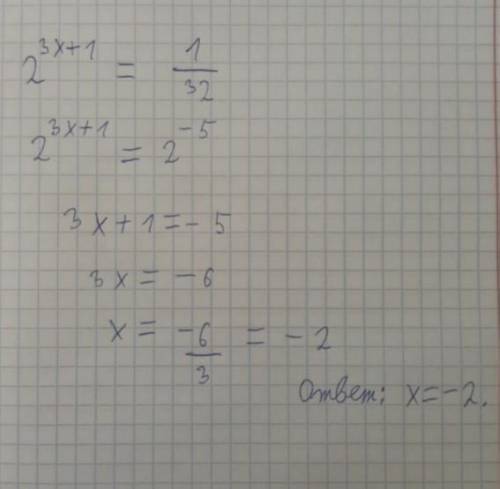 2^{3x+1} = \frac{1}{32}
2^{3x+1} = 2^{-5}
3x+1=-5
3x = -6
x = \frac{-6}{3} = -2
Ответ: x=-2.